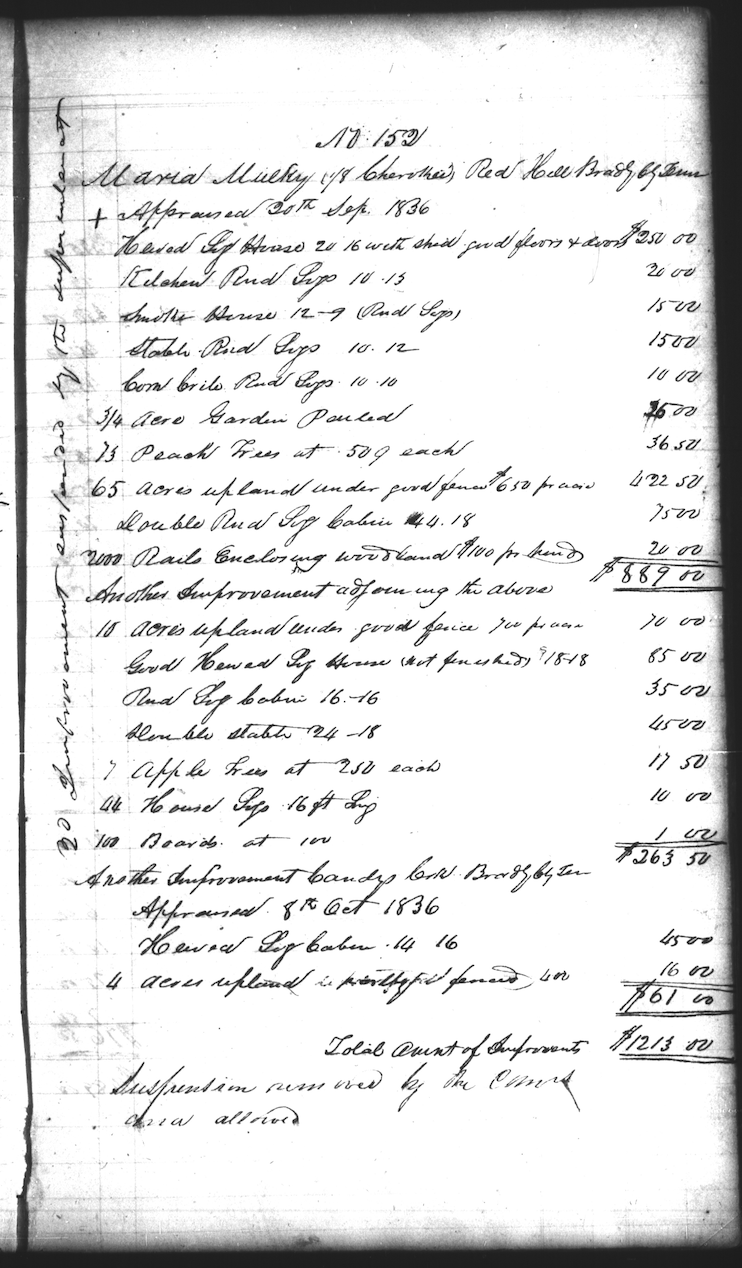 No. 152
Maria Mulky (1/8 Cherokee) Red Hill Brady Cy Tenn
+ Appraised 20th Sep. 1836
Hewed Log House 20 16 with shed good floors & doors $250 00
Kitchen Rnd Logs 10.13 20 00
Smoke House 12-9 (Rnd Logs) 15 00
Stable Rnd Logs 10.12 15 00
Corn Crib Rnd Logs 10.10 10 00
3/4 Acre Garden Pailed 00
73 Peach Trees at 50¢ each 36 50
65 Acres upland under good fence $6 50 pr acre 422 50
Double Rnd Log Cabin 44.18 75 00
2000 Rails Enclosing woodland $1 00 pr hund 20 00
$889 00
Another Improvement adjoining the above
10 Acres upland under good fence 7 00 pr acre 70 00
Good Hewed Log House (not finished) 18-18 85 00
Rnd Log Cabin 16-16 35 00
Double stable 24-18 45 00
7 Apple Trees at 2 50 each 17 50
44 House Logs 16 ft Lng 10 00
100 Boards at 1 00 1 00
$263 50
Another Improvement Candys Crk Brady Cy Ten
Appraised 8th Oct 1836
Hewed Log Cabin 14 16 45 00
4 acres upland fenced) 4 00 16 00
$61 00
Total Amnt of Improvments $1213 00
Suspension removed by the Comrs
and allowed
20 Improvement suspended by the superintendent